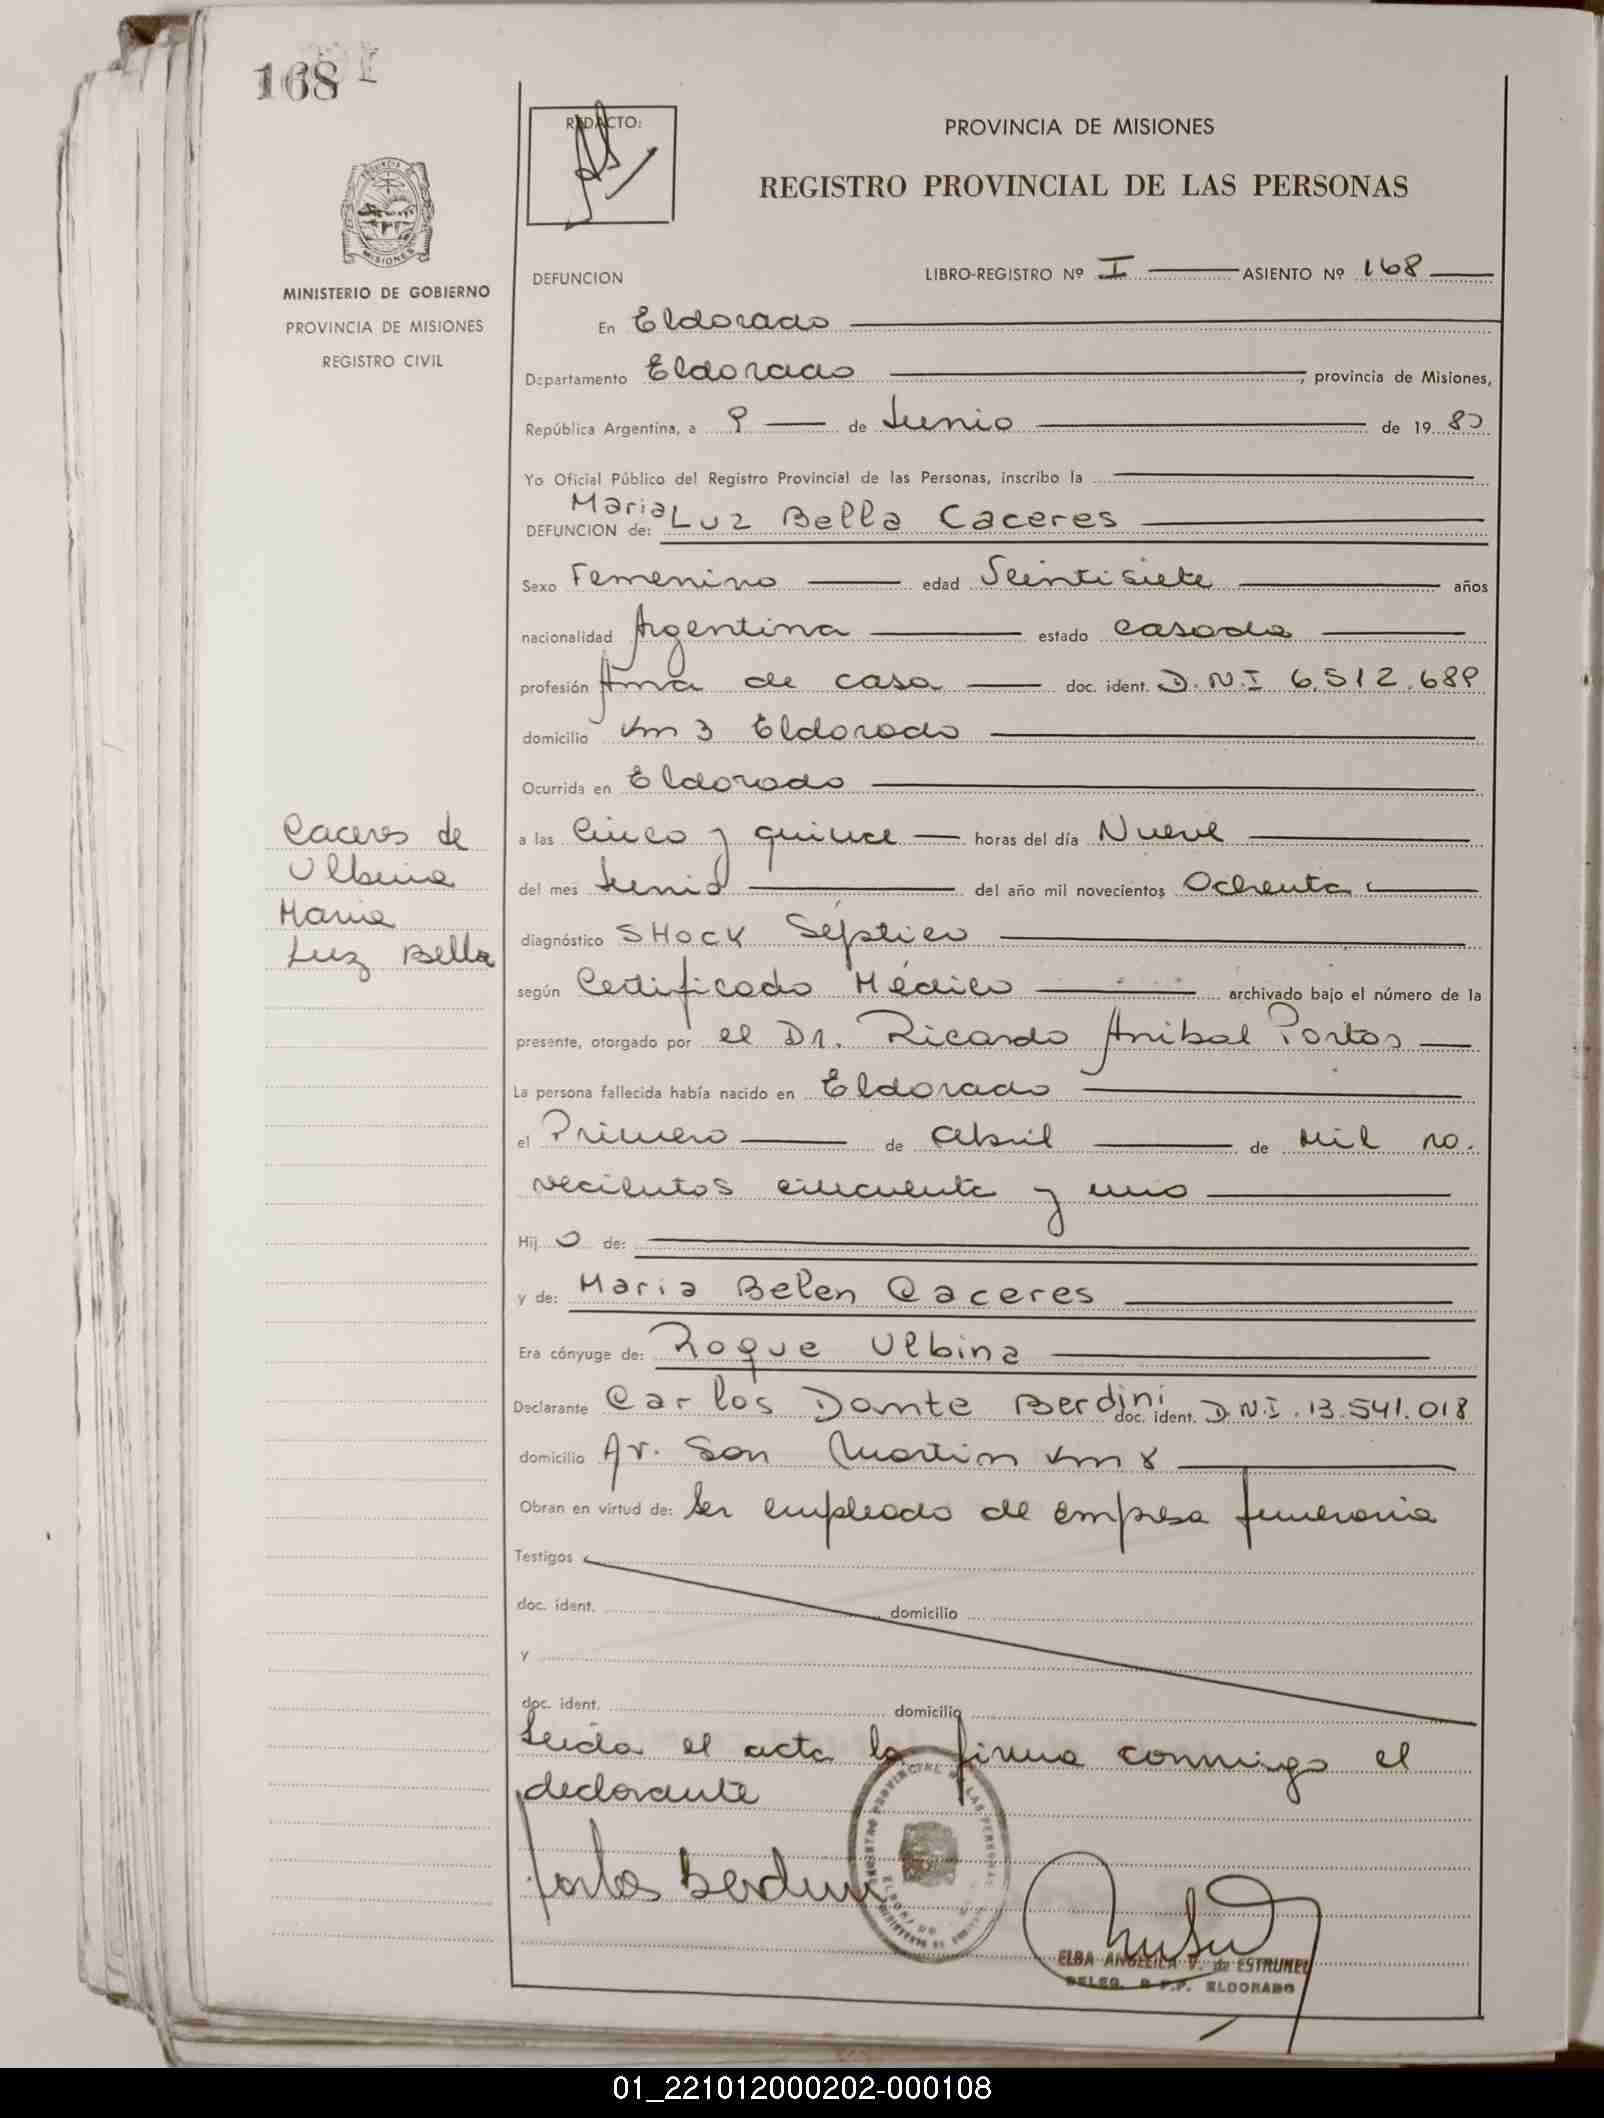 168
I
REDACTO:
PROVINCIA DE MISIONES
REGISTRO PROVINCIAL DE LAS PERSONAS
MINISTERIO DE GOBIERNO
PROVINCIA DE MISIONES
REGISTRO CIVIL
DEFUNCION
LIBRO-REGISTRO Nº I ASIENTO Nº 168
En Eldorado
Departamento Eldorado, provincia de Misiones,
República Argentina, a 9 de Junio de 1980
Yo Oficial Público del Registro Provincial de las Personas, inscribo la
DEFUNCION de: Maria Luz Bella Caceres
Sexo Femenino edad Veintisiete años
nacionalidad Argentina estado casada
profesión Ama de casa doc. ident. D.N.I 6.512.689
domicilio km 3 Eldorado
Ocurrida en Eldorado
a las Cinco y quince horas del día Nueve
del mes Junio del año mil novecientos Ochenta
diagnóstico SHock Séptico
según Certificado Médico archivado bajo el número de la
presente, otorgado por el Dr. Ricardo Anibal Portos
La persona fallecida había nacido en Eldorado
el Primero de abril de Mil no.
vecientos cincuenta y uno
Hij o de:
y de: Maria Belen Caceres
Era cónyuge de: Roque Ulbina
Declarante Carlos Dante Berdini doc. ident. D.N.I. 13.541.018
domicilio Av. San Martin km 8
Obran en virtud de: Ser empleado de empresa funeraria
Testigos
doc. ident. domicilio
y
doc. ident. domicilio
Leida el acta la firma conmigo el
declarante
Caceres de
Ulbina
Maria
Luz Bella
Carlos Berdini
REGISTRO PROVINCIAL DE LAS PERSONAS
ELBA ANGELICA V. de ESTRUMEL
DELEG. R.P.P. ELDORADO
01_221012000202-000108